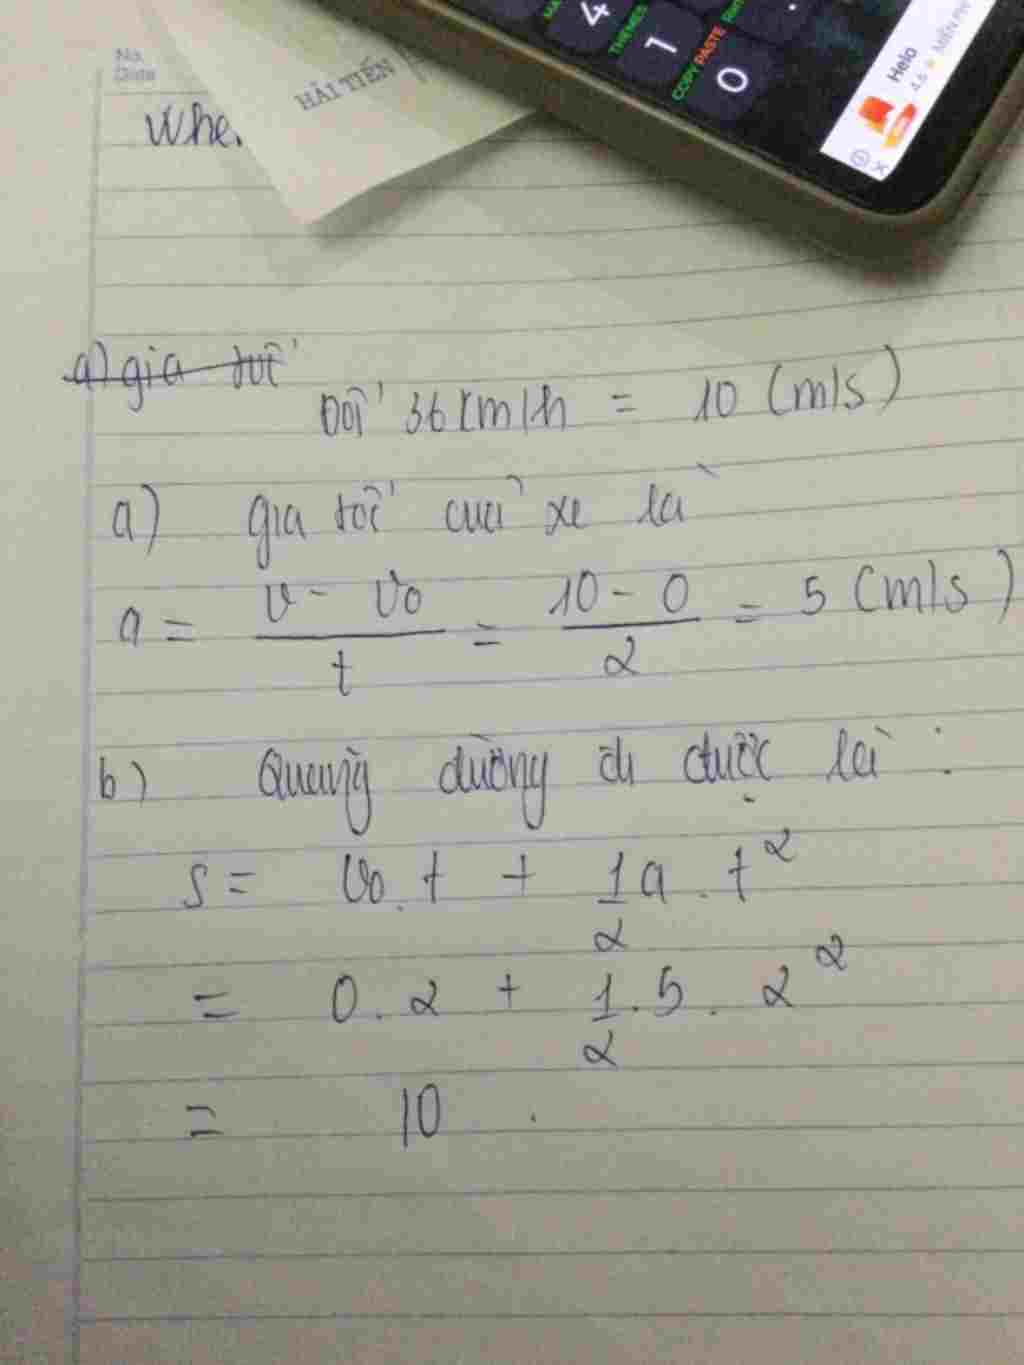 No.
Date
HẢI TIẾN
Whe
4
THEMES
1
COPY PASTE
0
Helo
4.6 ★ MIỄN PHÍ
a) gia tốc
Đổi 36 km/h = 10 (m/s)
a) gia tốc của xe là
a = \frac{v - v_0}{t} = \frac{10 - 0}{2} = 5 (m/s)
b) Quãng đường đi được là :
s = v_0 . t + \frac{1}{2} a . t^2
= 0 . 2 + \frac{1}{2} . 5 . 2^2
= 10 .